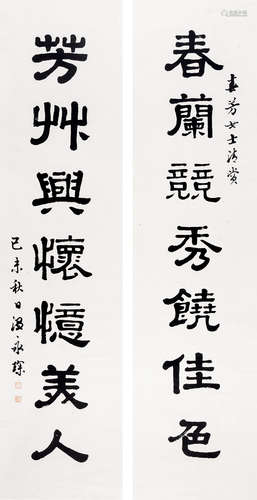 春蘭競秀饒佳色
春芳女士清賞
芳艸興懷憶美人
己未秋日溫永琛